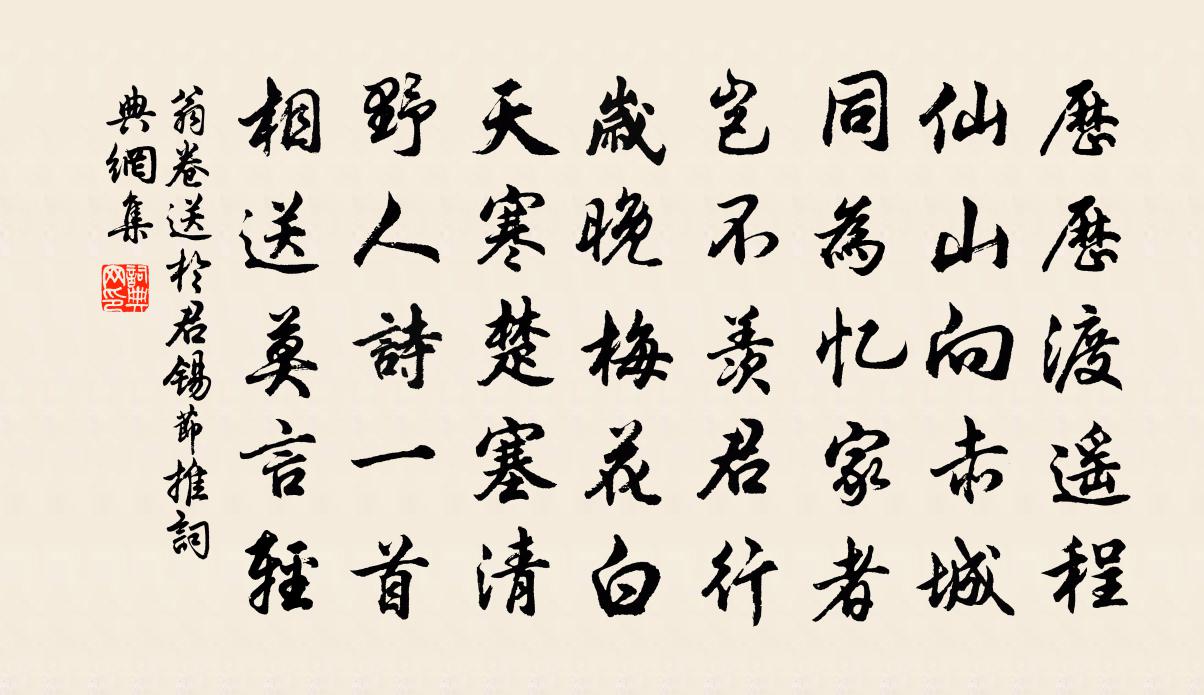 歷歷渡遥程
仙山向赤城
同為忆家者
岂不羨君行
歲晚梅花白
天寒楚塞清
野人詩一首
相送莫言輕
翁卷送於君錫節推詞
典網集
詞典
网印